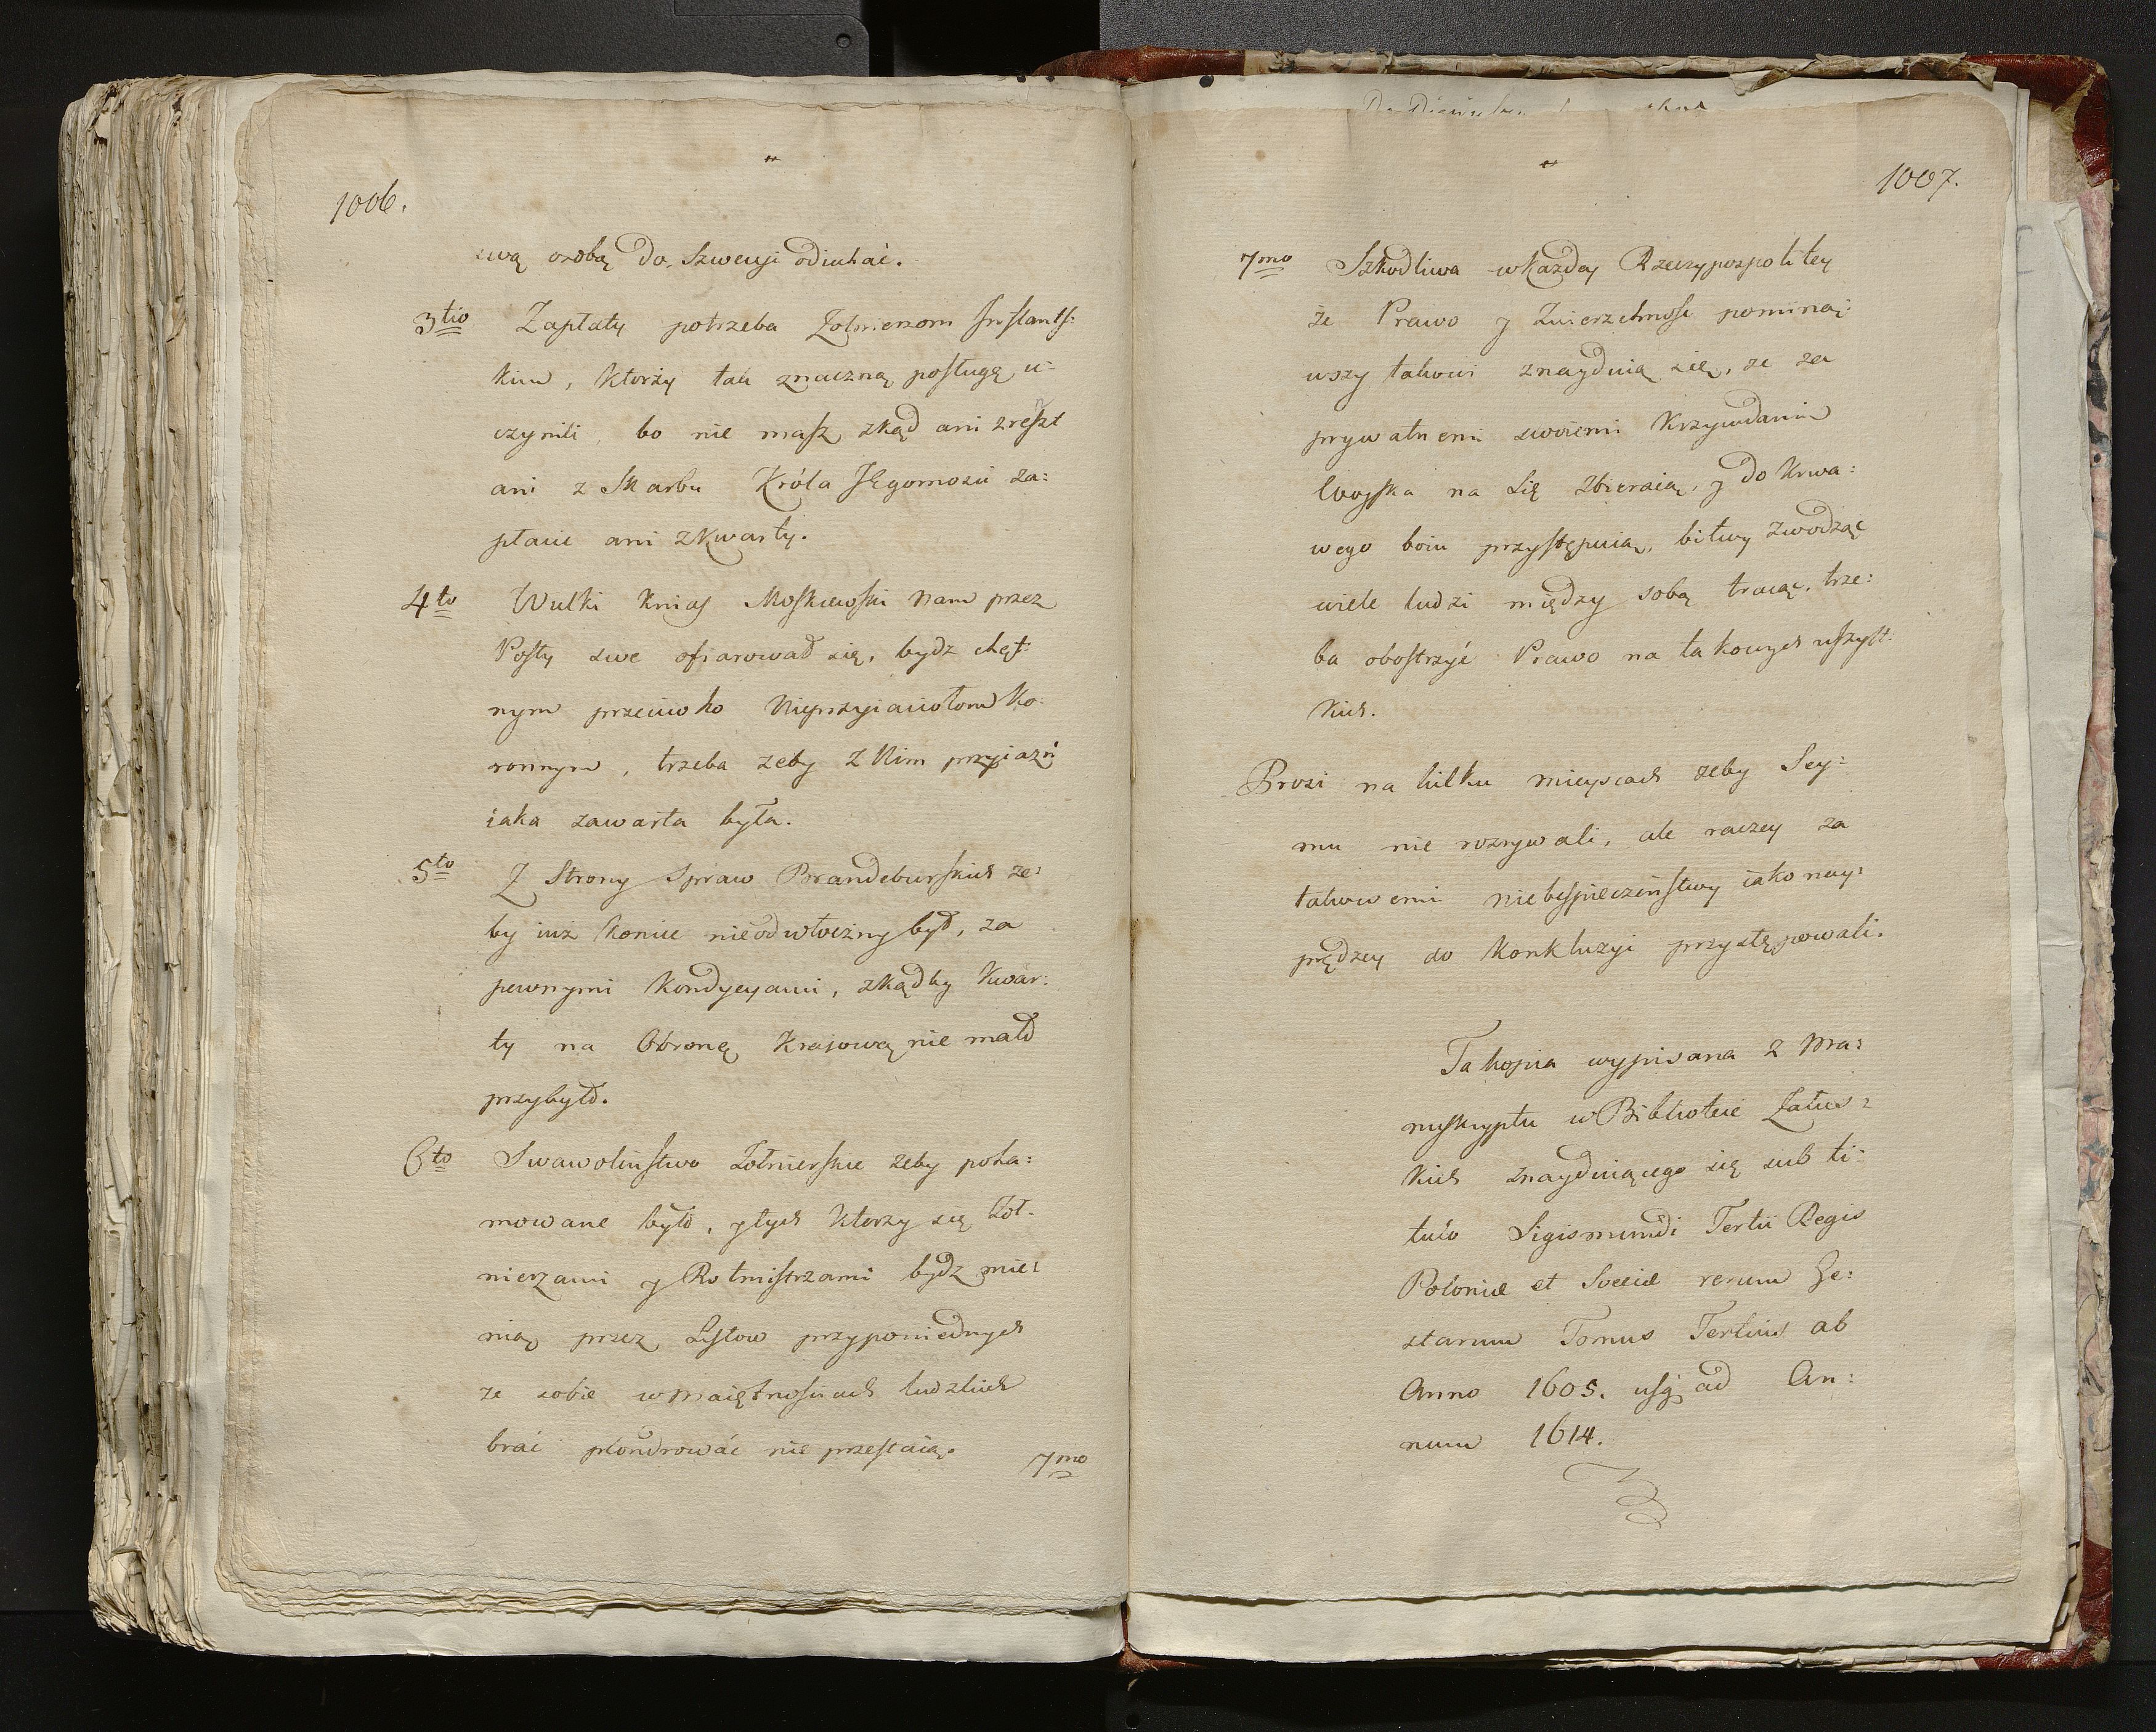 1006.
swą osobą do Szwecyi odiechać.
3tio Zapłaty potrzeba Żołnierzom Inflants:
kim, ktorży tak znaczną posługę u:
czynili, bo nie masz zkąd ani zreszt
ani z Skarbu Króla JEgomości za:
płacic ani zkwarty.
4to Wielki Kniaź Moskiewski nam przez
Posły swe ofiarował się, bydz chęt:
nym przeciwko Nieprzyiaciołom Ko:
ronnym, trzeba zeby z Nim przyiazń
iaka zawarta była.
5to Z Strony Spraw Brandeburskich ze:
by iuż koniec nieodwłoczny był, za
pewnymi Kondycyami, zkądby Kwar:
ty na Obronę Kraiową nie mało
przybyło.
6to Swawolinstwo Żołnierskie zeby poha:
mowane było, y tych ktorzy się Żoł:
nierzami y Rotmistrzami bydz mie:
nią przez Listow przypowiednych
ze sobie w maiętnościach ludzkich
brać plondrować nie przestaią.
7mo
1007.
7mo Szkodliwa w każdey Rzeczypospolitey
że Prawo y Zwierzchnośc pominą:
wszy takowi znayduią się, ze za
prywatnemi swoiemi Krzywdami
Woyska na Się Zbieraią, y do Krwa:
wego boiu przystępuią, bitwy zwodząc
wiele ludzi między sobą tracąc, trze:
ba obostrzyć Prawo na takowych wszyst:
kich.
Prosi na kilku mieyscach zeby Sey:
mu nie rozrywali, ale raczey za
takowemi niebespieczeństwy iako nay:
prędzey do Konkluzyi przystępowali.
Ta kopia wypisana z Ma:
nuskryptu w Bibliotece Załus:
kich znayduiącego się sub ti:
tulo Sigismundi Tertii Regis
Poloniæ et Sveciæ rerum Ge:
starum Tomus Tertius ab
Anno 1605. usq; ad An:
num 1614.